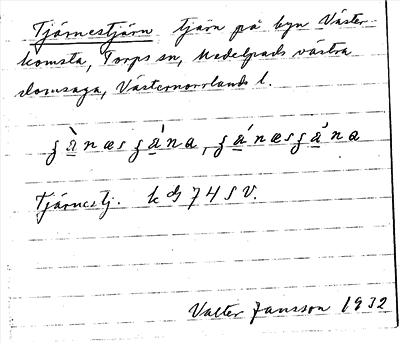 Tjärnestjärn tjärn på byn Väster-
komsta, Torps sn, Medelpads västra
domsaga, Västernorrlands l.
ʒànæsʒàna, ʒánæsʒàna
Tjärnestj. k dj 74 SV.
Valter Jansson 1932